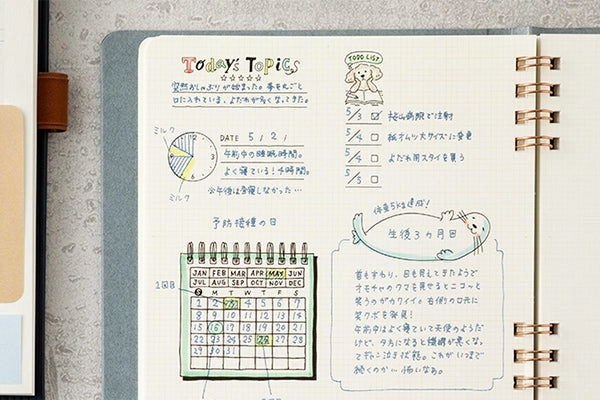 Today's Topics
突然おしゃぶりが始まった。手を丸ごと
口に入れている。よだれが多くなってきた。
ミルク
ミルク
DATE 5/2/
午前中の睡眠4時間。
よく寝ている!4時間。
今午後は昼寝しなかった…
TODO LIST
5/3 桜山病院で注射
5/4 紙オムツ大サイズに変更
5/4 よだれ用スタイを買う
5/5
予防接種の日
1回目
JAN FEB MAR APR MAY JUN
JUL AUG SEP OCT NOV DEC
S M T W T F S
1 2 3 4 5 6 7
8 9 10 11 12 13 14
15 16 17 18 19 20 21
22 23 24 25 26 27 28
29 30 31
体重5kg達成!
生後3ヵ月目
首もすわり、目も見えてきたようで
オモチャのクマを見せるとニコッと
笑うのがカワイイ。右側の口元に
笑クボを発見!
午前中はよく寝ていて天使のようだ
けど、夕方になると機嫌が悪くなっ
てギャン泣き状態。これがいつまで
続くのか…怖いなあ。